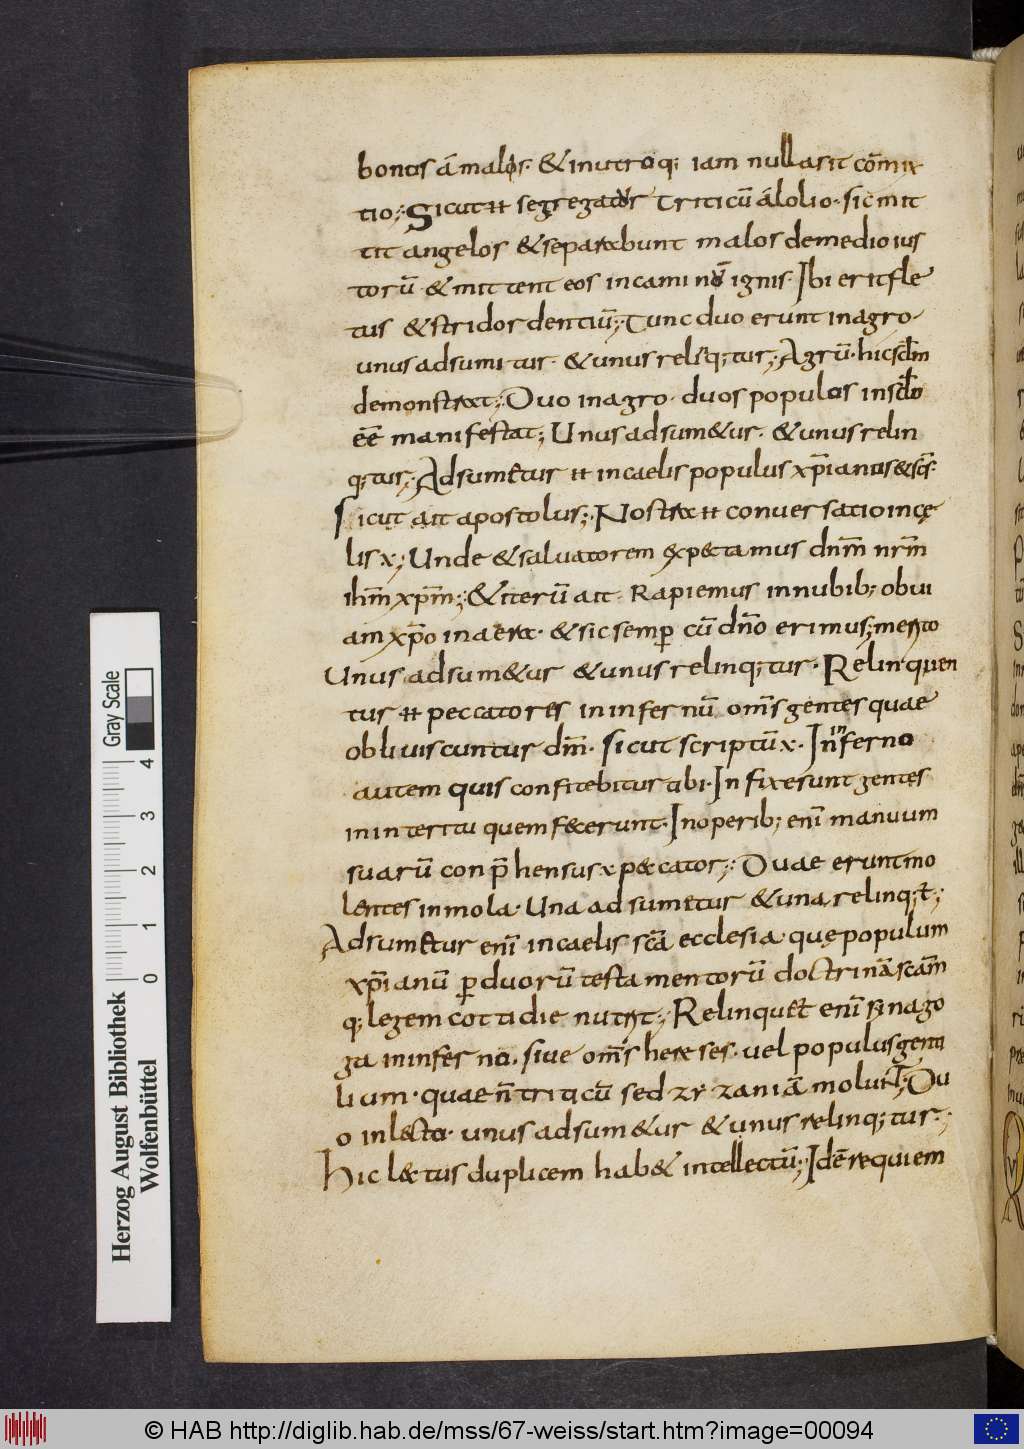 bonos a malos · & in utroq; iam nulla sit cōmix
tio; Sicut segregator triticū a lolio · sic mit
tit angelos & separabunt malos de medio ius
torū · & mittent eos in caminū ignis · Ibi erit fle
tus & stridor dentiū; Tunc duo erunt in agro ·
unus adsumitur · & unus relinq;tur; Agrū · hic sclm
demonstrat; Duo in agro · duos populos in sclo
eē manifestat; Unus adsum&ur · & unus relin
q;tur; Adsumetur in caelis populus xp̄ianus & sc̄s ·
Sicut ait apostolus; Nostra conuersatio in cę
lis ; Unde & saluatorem exp&tamus dnm̄ nrm̄
ihm̄ xpm̄; & iterū ait · Rapiemus in nubib; obui
am xp̄o in aera · & sic semp̄ cū dn̄o erimus; merito
Unus adsum&ur & unus relinq;tur · Relinquen
tur peccatores in infernū om̄s gentes quae
obliuiscuntur dm̄ · Sicut scriptū · In inferno
autem quis confitebitur tibi · Infixe sunt gentes
in interitu quem fecerunt · In operib; eni̅ manuum
suarū conp̄hensus peccator; Duae erunt mo
lentes in mola · Una adsumetur & una relinq;t̄;
Adsumetur eni̅ in caelis sc̄a ecclesia · quę populum
xp̄ianū p̱ duorū testamentorū doctrinā scām
q; legem cottidie nutrit; Relinquet eni̅ sinago
ga in inferno · siue om̄s hereses · uel populus genti
lium · quae n̄ triticū sed zyzaniā molunt; Du
o in lecto · unus adsum&ur & unus relinq;tur ·
Hic lectus duplicem hab& intellectū; Idē requiem
Herzog August Bibliothek
Wolfenbüttel
0 1 2 3 4
Gray Scale
© HAB http://diglib.hab.de/mss/67-weiss/start.htm?image=00094